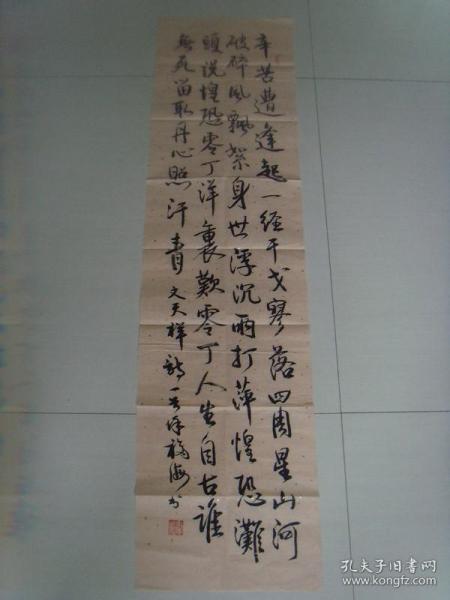 辛苦遭逢起一经干戈寥落四周星山河
破碎风飘絮身世浮沉雨打萍惶恐滩
头说惶恐零丁洋裏歎零丁人生自古谁
无死留取丹心照汗青文天祥诗一首 福海书
孔夫子旧书网
www.kongfz.com